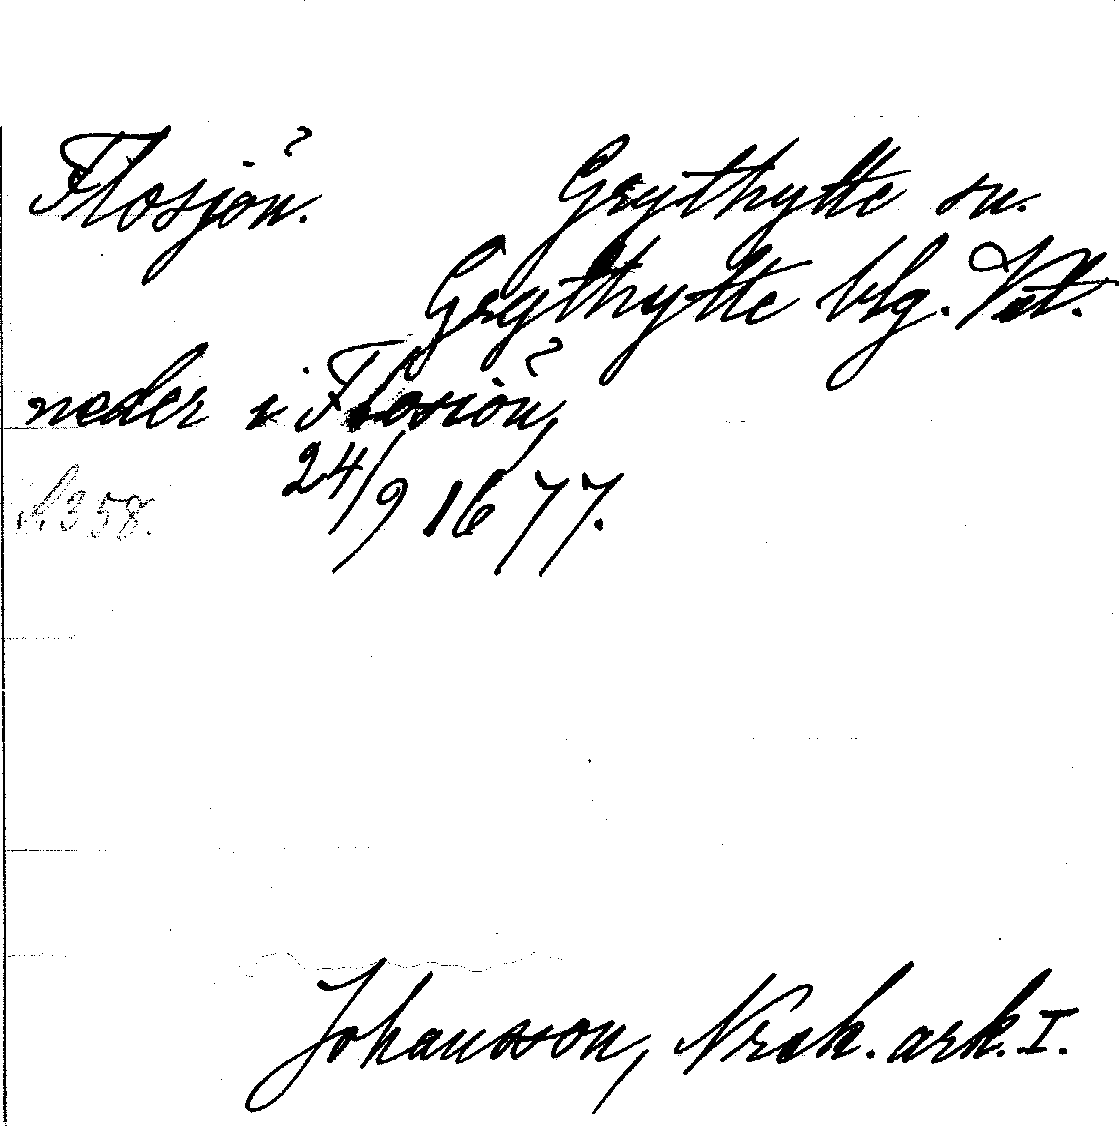 Flosjön. Grythytte sn.
Grythytte blg. Vstl.
neder i Flosiön,
24/9 1677.
s. 358.
Johansson, Norak. ark. I.